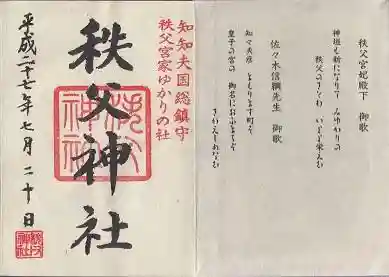 秩父宮妃殿下 御歌
神垣も新になりて みゆかりの
秩父のさとわ いよよ栄えむ
佐々木信綱先生 御歌
知々夫彦 まもります町
皇子の宮の 御名におふまち
さかえしあなむ
知知夫国総鎮守
秩父宮家ゆかりの社
秩父神社
平成二十七年七月二十日